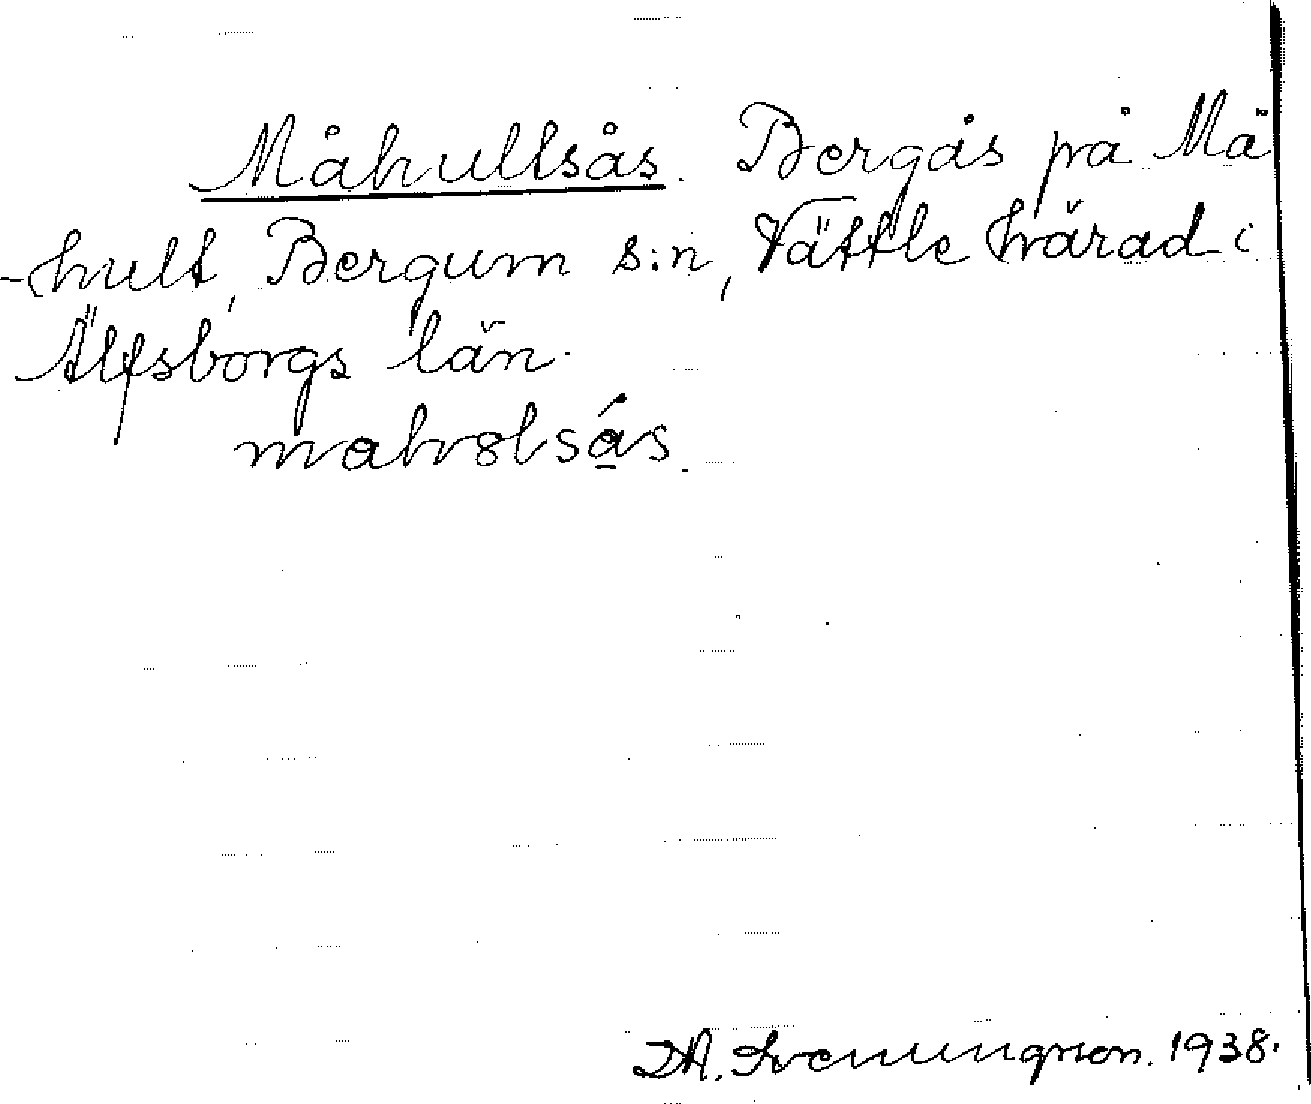 Måhultsås. Bergås på Må
-hult, Bergum s:n, Vättle härad i
Älfsborgs län.
mahɷltsa̱̒s.
D.A. Svenungson. 1938.